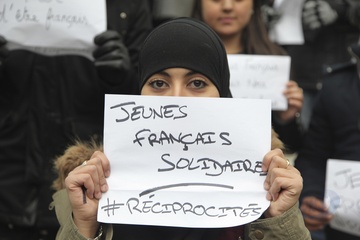 d'être français
JEUNES
FRANÇAIS
SOLIDAIRE
#RÉCIPROCITÉS